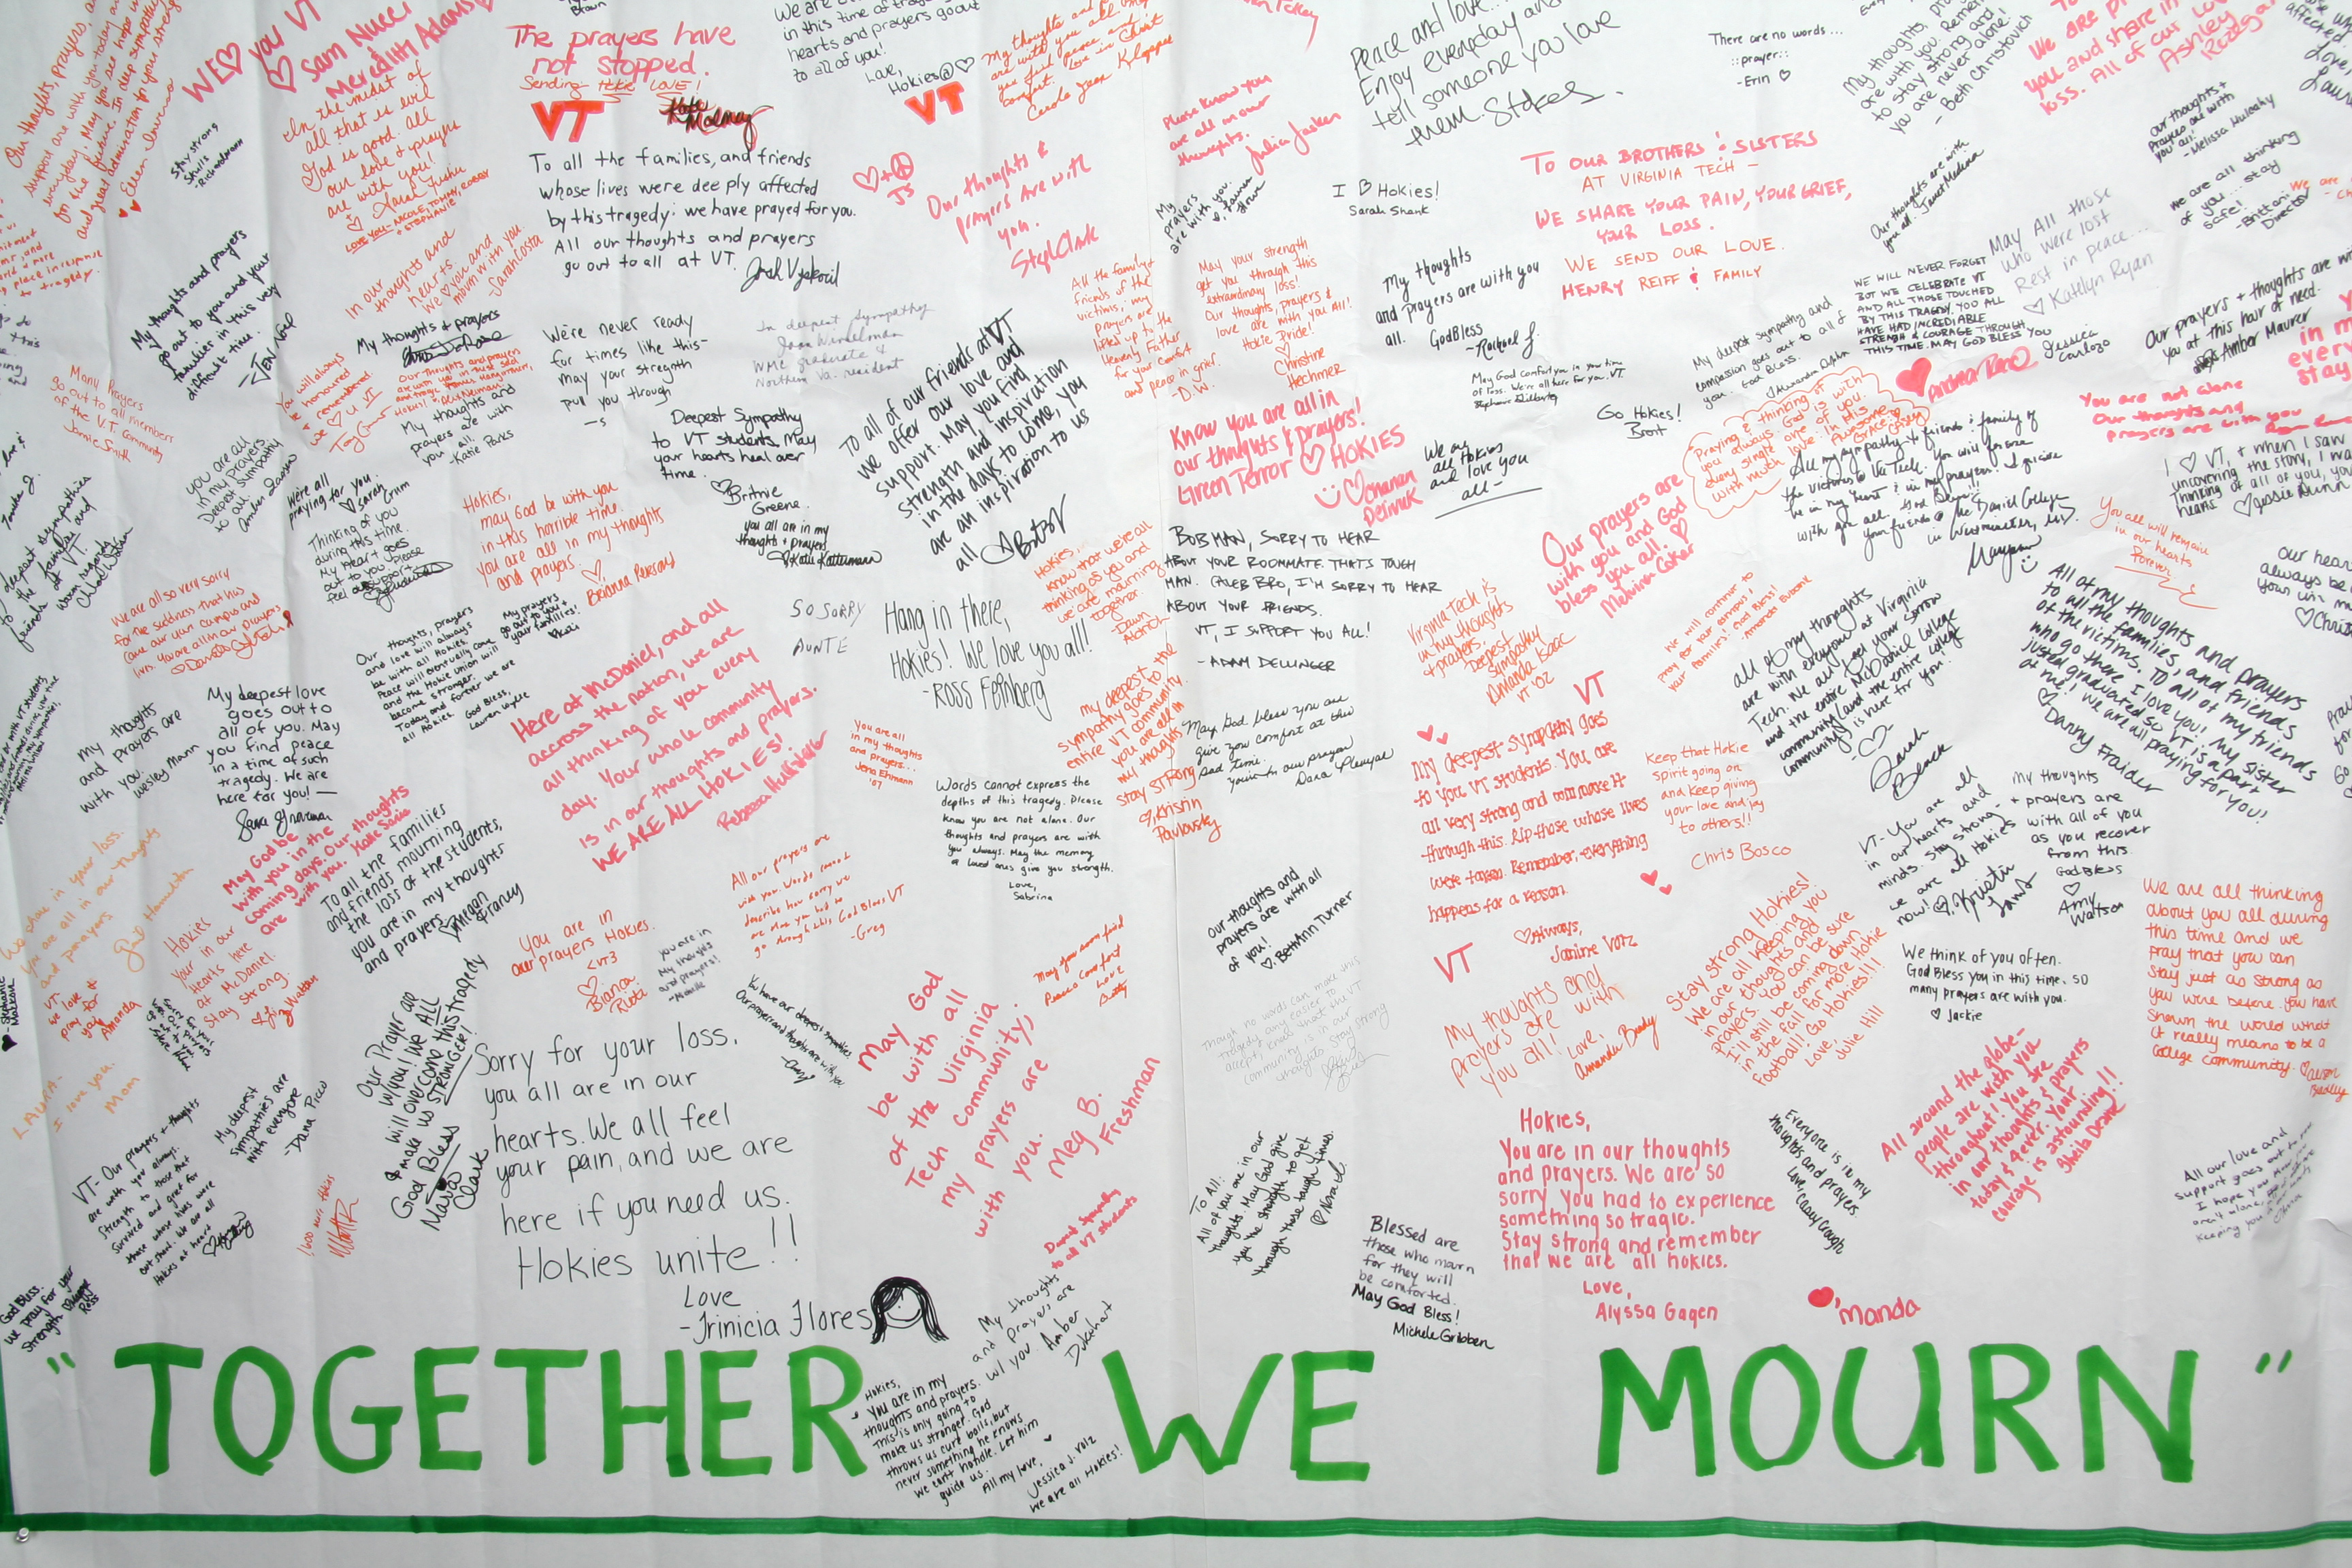 WE ♡ you VT
♡ Sam Nucci
Meredith Adams
The prayers have
not stopped.
Sending LOVE!
VT
in this time of
hearts and prayers go out
to all of you!
Love,
Hokies@♡
VT
Peace and love...
Enjoy everyday and
tell someone you love
them. Stokes.
There are no words...
::prayer::
-Erin ♡
My thoughts,
are with you.
to stay strong and
you are never alone!
- Beth Christovich
you and share in
loss. All of our love
Ashley
our thoughts +
prayers are with
you all!
- Melissa Huleahy
we are all thinking
of you... stay
safe!
-Brittani
Director
Stay strong
Skulls
-Richardmann
In the midst of
all that is evil
God is good. All
our love & prayers
are with you!
LOVE YOU - NICOLE, TOMMY, BOBBY
+ STEPHANIE
To all the families, and friends
whose lives were deeply affected
by this tragedy: we have prayed for you.
All our thoughts and prayers
go out to all at VT.
♡+☮
JS
Our thoughts &
prayers are with
you.
Steph Clark
Please know you
are all in our
thoughts.
Julia Jasken
My
prayers
are with you.
I ♡ Hokies!
Sarah Shank
TO OUR BROTHERS & SISTERS
AT VIRGINIA TECH -
WE SHARE YOUR PAIN, YOUR GRIEF,
YOUR LOSS.
WE SEND OUR LOVE.
HENRY REIFF & FAMILY
Our thoughts are with
you all - Janet Medina
May All those
who were lost
Rest in peace...
♡ Katelyn Ryan
My thoughts and prayers
go out to you and your
families in this very
difficult time.
- Jen Noel
In our
thoughts and
hearts.
We ♡ you and
mourn with you.
-Sarah Costa
We're never ready
for times like this-
may your stregnth
pull you through
-S
In deepest sympathy
Joan Winkelman
WMC graduate &
Northern Va. resident
All the family &
friends of the
victims; my
prayers are
lifted up to the
Heavenly Father
for your comfort
and peace in grief.
-D.W.
May your strength
get you through this
extraordinary loss!
Our thoughts, prayers &
love are with you All!
Hokie Pride!
♡
Christine
Hechmer
My thoughts
and prayers are with you
all. God Bless
-Rachael J.
May God comfort you in your time
of loss. We're all here for you. VT
WE WILL NEVER FORGET
BUT WE CELEBRATE VT
AND ALL THOSE TOUCHED
BY THIS TRAGEDY. YOU ALL
HAVE HAD INCREDIABLE
STRENGTH & COURAGE THROUGH
THIS TIME. MAY GOD BLESS YOU
Jessica
Cardozo
My deepest sympathy and
compassion goes out to all of
you. God Bless.
Our prayers + thoughts are with
you at this hour of need.
Amber Maurer
Many Prayers
go out to all members
of the V.T. Community
Jamie Smith
You will always
be honoured
& remembered.
We ♡ U VT
My thoughts & prayers
My thoughts and
prayers are with
you all.
-Katie Parks
Deepest Sympathy
to VT students. May
your hearts heal over
time.
♡ Britnie
Greene
To all of our friends at VT
we offer our love and
support. May you find
strength and inspiration
in the days to come, you
are an inspiration to us
all.
Know you are all in
our thoughts & prayers!
Green Terror ♡ HOKIES
We are
all Hokies
and love you
all-
Go Hokies!
Brent
Praying & thinking of
you always. God is with
every single one of you.
With much love in this
Awesome
Grace
All my sympathy to friends & family of
the victims @ Va Tech. You will forever
be in my heart & in my prayers.
your friends @ McDaniel College
in Westminster, MD.
You are not alone
Our thoughts and
prayers are with you
I ♡ VT, + when I saw
uncovering the story, I wa
thinking of all of you, you
hearts ♡ Jessie Dunn
You all will remain
in our hearts
Forever
you are all
in my prayers
Deepest Sympathy
to all.
We're all
praying for you.
♡ Sarah Grim
Thinking of you
during this time.
My Heart goes
out to you please
feel our support
Hokies,
may God be with you
in this horrible time.
you are all in my thoughts
and prayers.
♡
Brianna
you all are in my
thoughts + prayers
♡ Katie Katterman
Hokies,
know that we're all
thinking of you and
we are mourning
together.
-Dawn
Aldrich
BOBMAN, SORRY TO HEAR
ABOUT YOUR ROOMMATE. THAT'S TOUGH
MAN. CALEB BRO, I'M SORRY TO HEAR
ABOUT YOUR FRIENDS.
VT, I SUPPORT YOU ALL!
- ADAM DELLINGER
Our prayers are
with you and God
bless you all. ♡
We will continue to
pray for your campus &
your families! God Bless!
-Amanda Eubank
Virginia Tech is
in my thoughts
& prayers.
Deepest
Sympathy
Amanda Isaac
VT '02
VT
all of my thoughts
are with everyone at Virginia
Tech. We all feel your sorrow
and the entire McDaniel College
community (and the entire college
community) is here for you!
-♡-
Sarah
Beack
All of my thoughts and prayers
to all the families, and friends
of the victims. To all of my friends
who go there I love you! My sister
just graduated so VT is a part
of me! We are all praying for you!
♡
Danny Fraider
We are all so very sorry
for the suddness that has
came over your campus and
lives. You are all in our prayers
SO SORRY
AUNTE
Hang in there,
Hokies! We love you all!
-ROSS Feinberg
Our thoughts, prayers
and love will always
be with all Hokies
Peace will eventually come
and the Hokie union will
become stronger.
Today and forever we are
all Hokies.
God Bless,
Lauren Wyble
My prayers
go out to you +
your families!
Here at McDaniel, and all
accross the nation, we are
all thinking of you every
day. Your whole community
is in our thoughts and prayers.
WE ARE ALL HOKIES!
my thoughts
and prayers are
with you.
Wesley Mann
My deepest love
goes out to
all of you. May
you find peace
in a time of such
tragedy. We are
here for you! —
You are all
in my thoughts
and prayers...
Jena Ehmann
'07
my deepest
sympathy goes to the
entire VT community.
you are all in
my thoughts
stay strong
Kristin
Pavlovsky
May God bless you and
give you comfort at this
sad time.
You're in our prayers
♡♡
my deepest sympathy goes
to you VT students. You are
all very strong and can make it
through this. Rip those whose lives
were taken. Remember, everything
happens for a reason.
♡Always,
Janine Volz
VT
Keep that Hokie
spirit going on
and keep giving
your love and joy
to others!!
Chris Bosco
VT- You are all
in our hearts and
minds. Stay strong -
we are all Hokies
now!
♡, Kristin
my thoughts
+ prayers are
with all of you
as you recover
from this
God Bless
♡
Amy
Watson
Words cannot express the
depths of this tragedy. Please
know you are not alone. Our
thoughts and prayers are with
you always. May the memory
of loved ones give you strength.
Love,
Sabrina
May God be
with you in the
coming days. Our thoughts
are with you.
To all the families
and friends mourning
the loss of the students,
you are in my thoughts
and prayers
Megan
Francy
All our prayers are
with you. Words cannot
describe how sorry we
are that you had to
go through this. God Bless VT
-Greg
We share in your loss.
You are all in our thoughts
and prayers
Hokies
your in our
Hearts here
at McDaniel.
Stay strong.
You are in
our prayers Hokies.
<VT3
♡
Bianca
you are in
my thoughts
and prayers!
You have our deepest sympathies
Our prayers and thoughts are with you
our thoughts and
prayers are with all
of you!
♡, BethAnn Turner
Stay strong Hokies!
We are all keeping you
in our thoughts and
prayers. You can be sure
I'll still be coming down
in the fall for more Hokie
football! Go Hokies!!!
Love,
Julie Hill
We think of you often.
God Bless you in this time. So
many prayers are with you.
♡ Jackie
We are all thinking
about you all during
this time and we
pray that you can
stay just as strong as
you were before. you have
shown the world what
it really means to be a
college community.
VT-
we love &
pray for
you
Amanda
Our Prayer are
w/you! We ALL
will overcome this tragedy
& make us STRONGER!
God Bless
Maria
Clark
May God
be with all
of the Virginia
Tech Community,
my prayers are
with you.
Meg B.
Freshman
May you soon find
Peace & comfort
Love
Betty
Though no words can make this
tragedy any easier to
accept, know that the VT
community is in our
thoughts. Stay strong
My thoughts and
prayers are with
you all!
Love,
Amanda Brady
LAURA-
I love you.
Mom
My deepest
sympathies are
with everyone
-Dana Pico
Sorry for your loss.
you all are in our
hearts. We all feel
your pain, and we are
here if you need us.
Hokies unite!!
Love
-Trinicia Flores
Hokies,
You are in our thoughts
and prayers. We are so
sorry you had to experience
something so tragic.
Stay strong and remember
that we are all hokies.
Love,
Alyssa Gagen
Everyone is in my
thoughts and prayers.
Love, Casey Gough
All around the globe-
people are with you
throughout! You are
in my thoughts & prayers
today & 4 ever. Your
courage is astounding!!
Sheila Drane
VT- Our prayers + thoughts
are with you always.
Strength to those that
survived and grief for
those whose lives were
cut short. We are all
Hokies at heart
To All:
All of you are in our
thoughts. May God give
you the strength to get
through these tough times.
Blessed are
those who mourn
for they will
be comforted.
May God Bless!
Michele Gribben
Deepest sympathy
to all VT students
All our love and
support goes out to
God Bless.
We pray for your
strength
♡, manda
My thoughts
and prayers are
w/ you.
Amber
Hokies,
You are in my
thoughts and prayers.
This is only going to
make us stronger. God
throws us curt balls, but
never something he knows
we can't handle. Let him
guide us.
All my love,
Jessica J. Volz
We are all Hokies!
"TOGETHER WE MOURN"